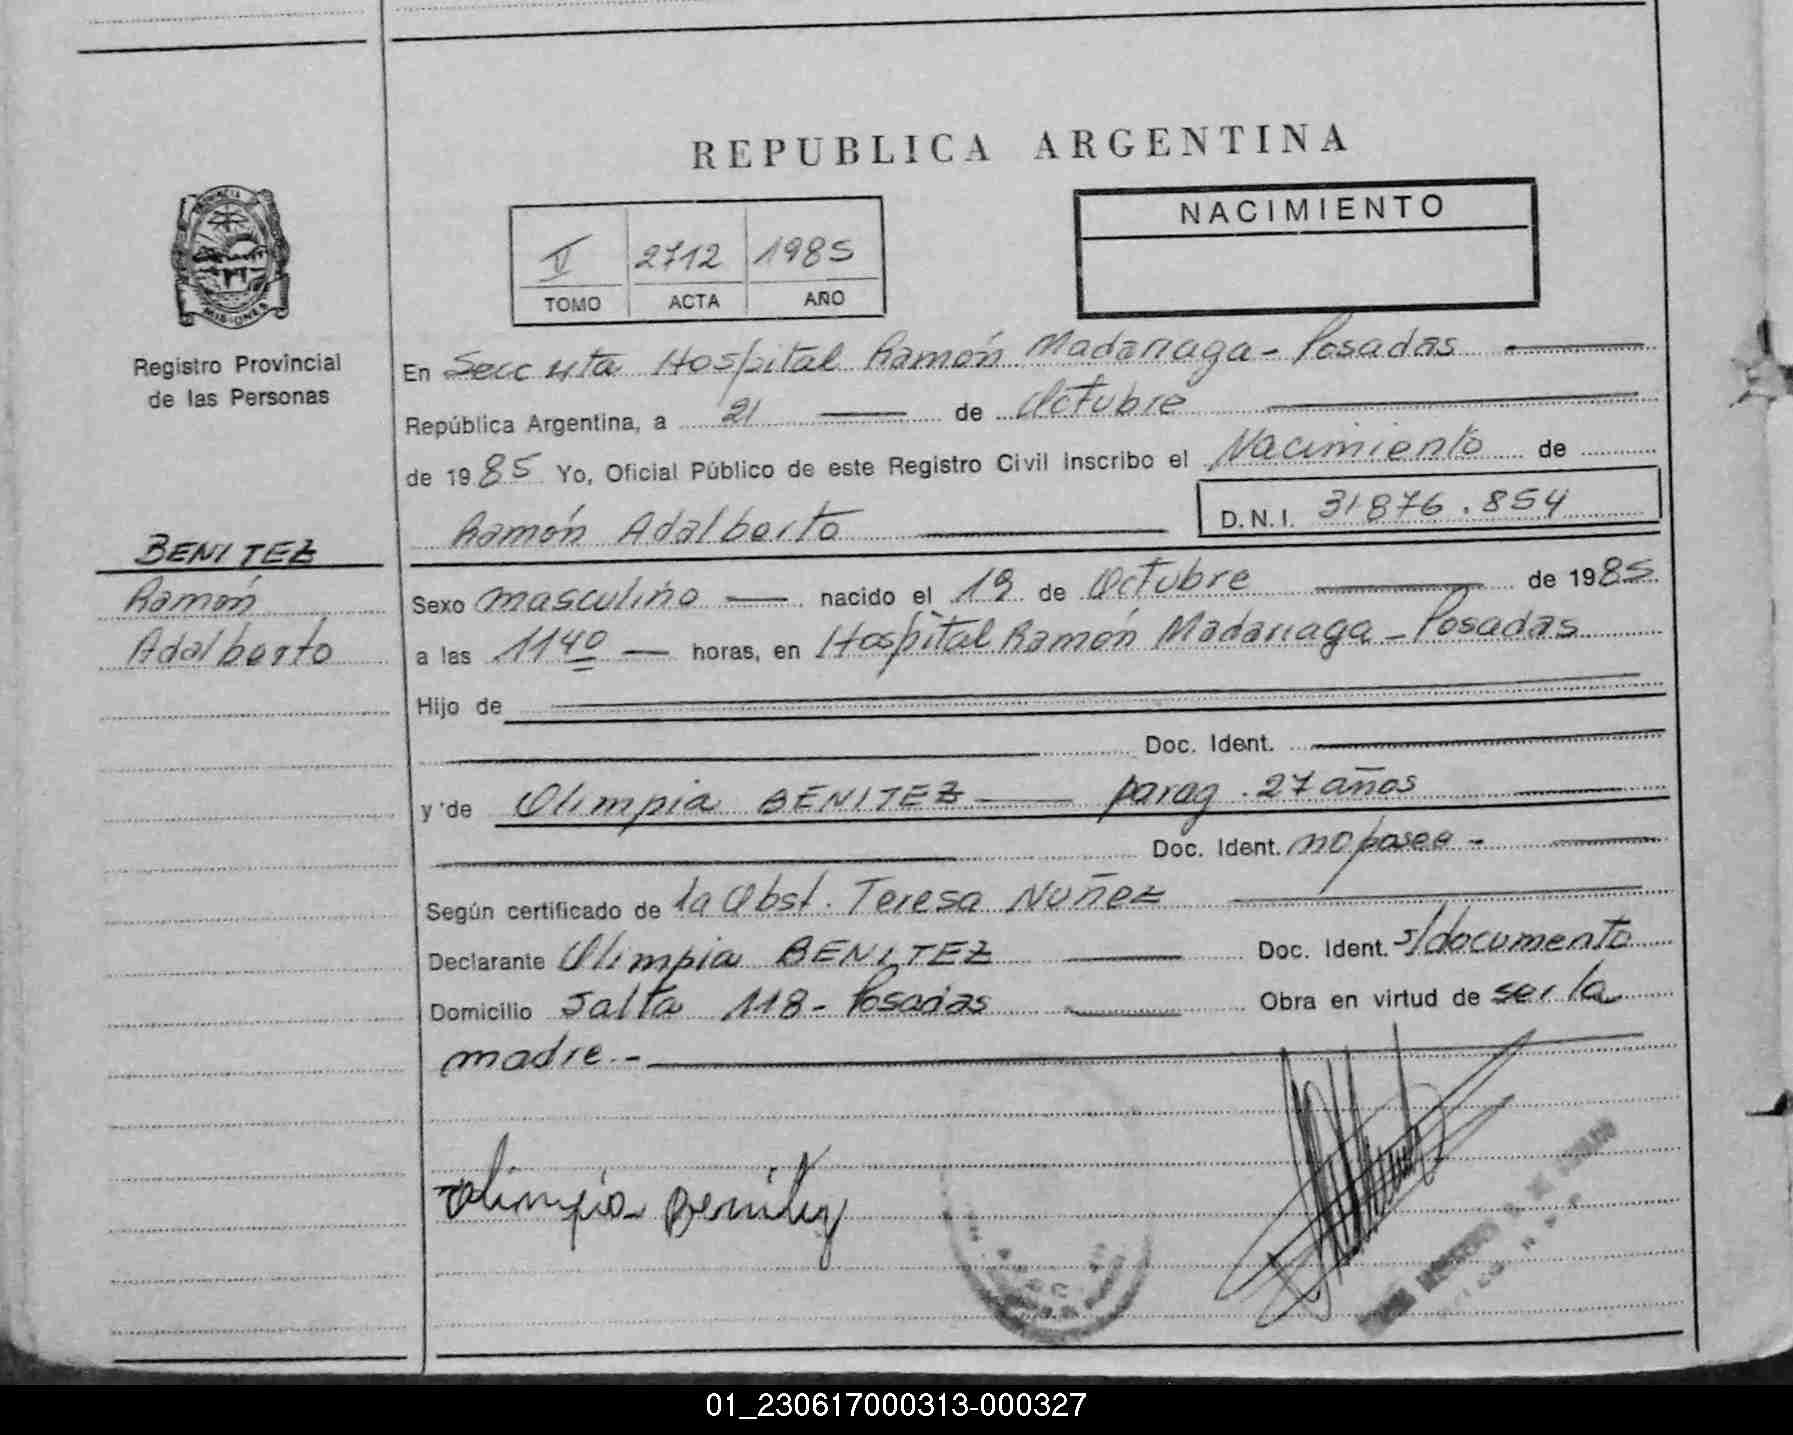 REPUBLICA ARGENTINA
NACIMIENTO
V 2712 1985
TOMO ACTA AÑO
PROVINCIA
MISIONES
Registro Provincial
de las Personas
BENITEZ
Ramón
Adalberto
En Secc Hospital Ramón Madariaga - Posadas
República Argentina, a 21 de Octubre
de 1985 Yo, Oficial Público de este Registro Civil inscribo el Nacimiento de
Ramón Adalberto D.N.I. 31876.854
Sexo masculino nacido el 19 de Octubre de 1985
a las 1140 horas, en Hospital Ramón Madariaga - Posadas
Hijo de
Doc. Ident.
y de Olimpia BENITEZ parag. 27 años
Doc. Ident. no posee -
Según certificado de la Obst. Teresa Nuñez
Declarante Olimpia BENITEZ Doc. Ident. s/documento
Domicilio Salta 118 - Posadas Obra en virtud de ser la
madre. -
Olimpia Benitez
01_230617000313-000327